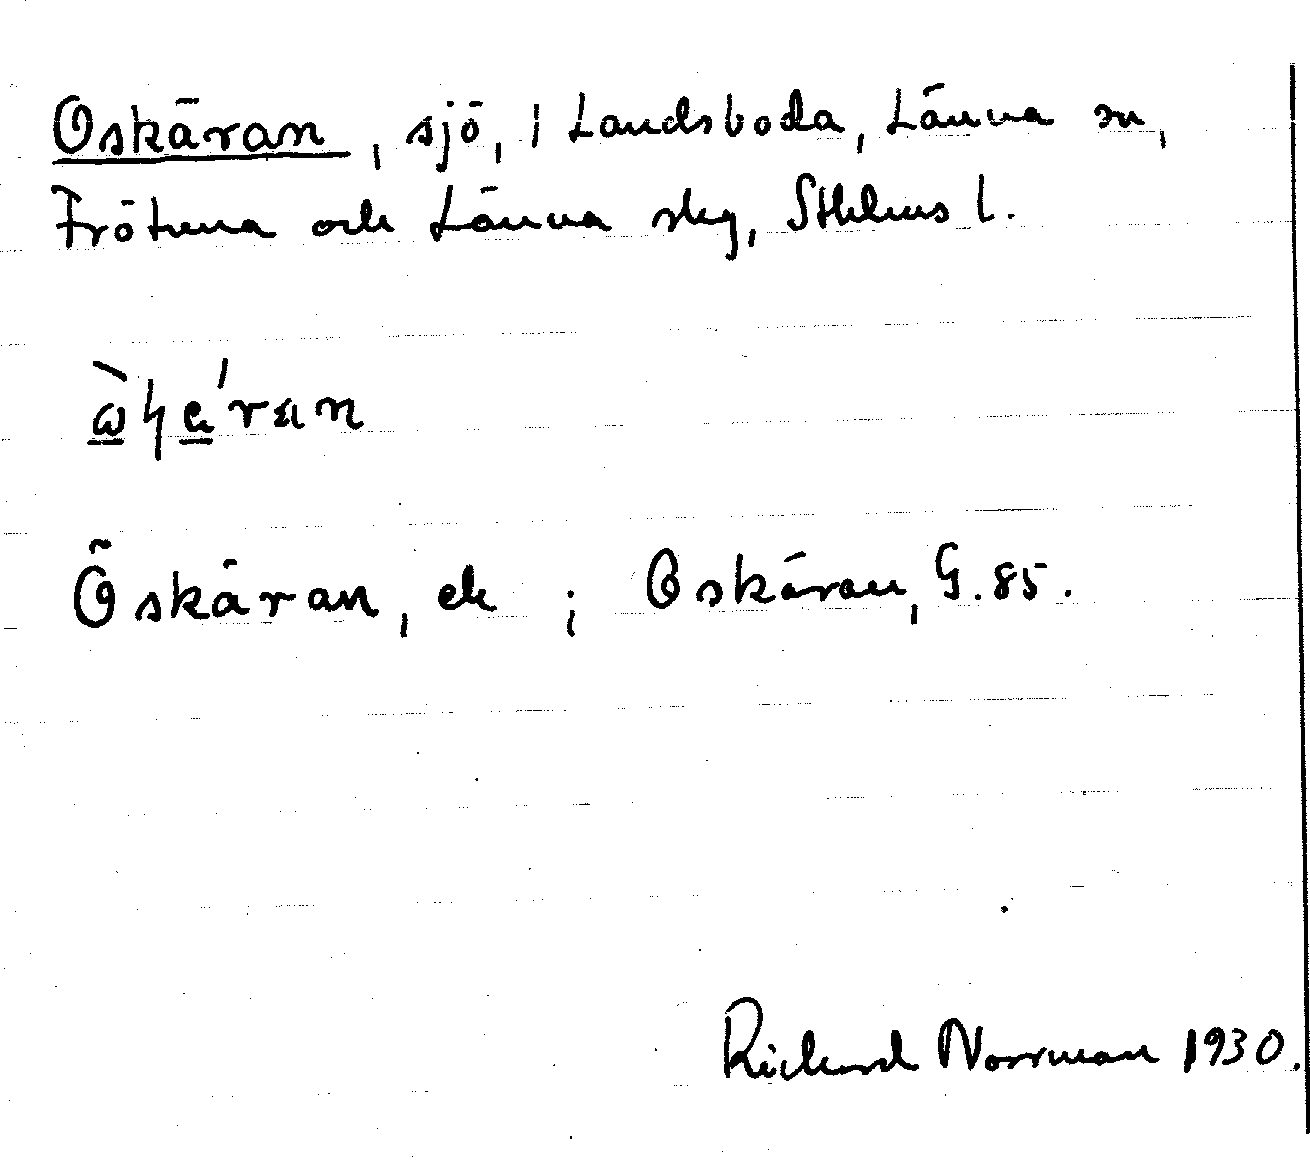 Oskäran, sjö, i Landsboda, Länna sn,
Frötuna och Länna skg, Sthlms l.
Öskäran, ek ; Oskäran, G. 85.
Rickard Norrman 1930.